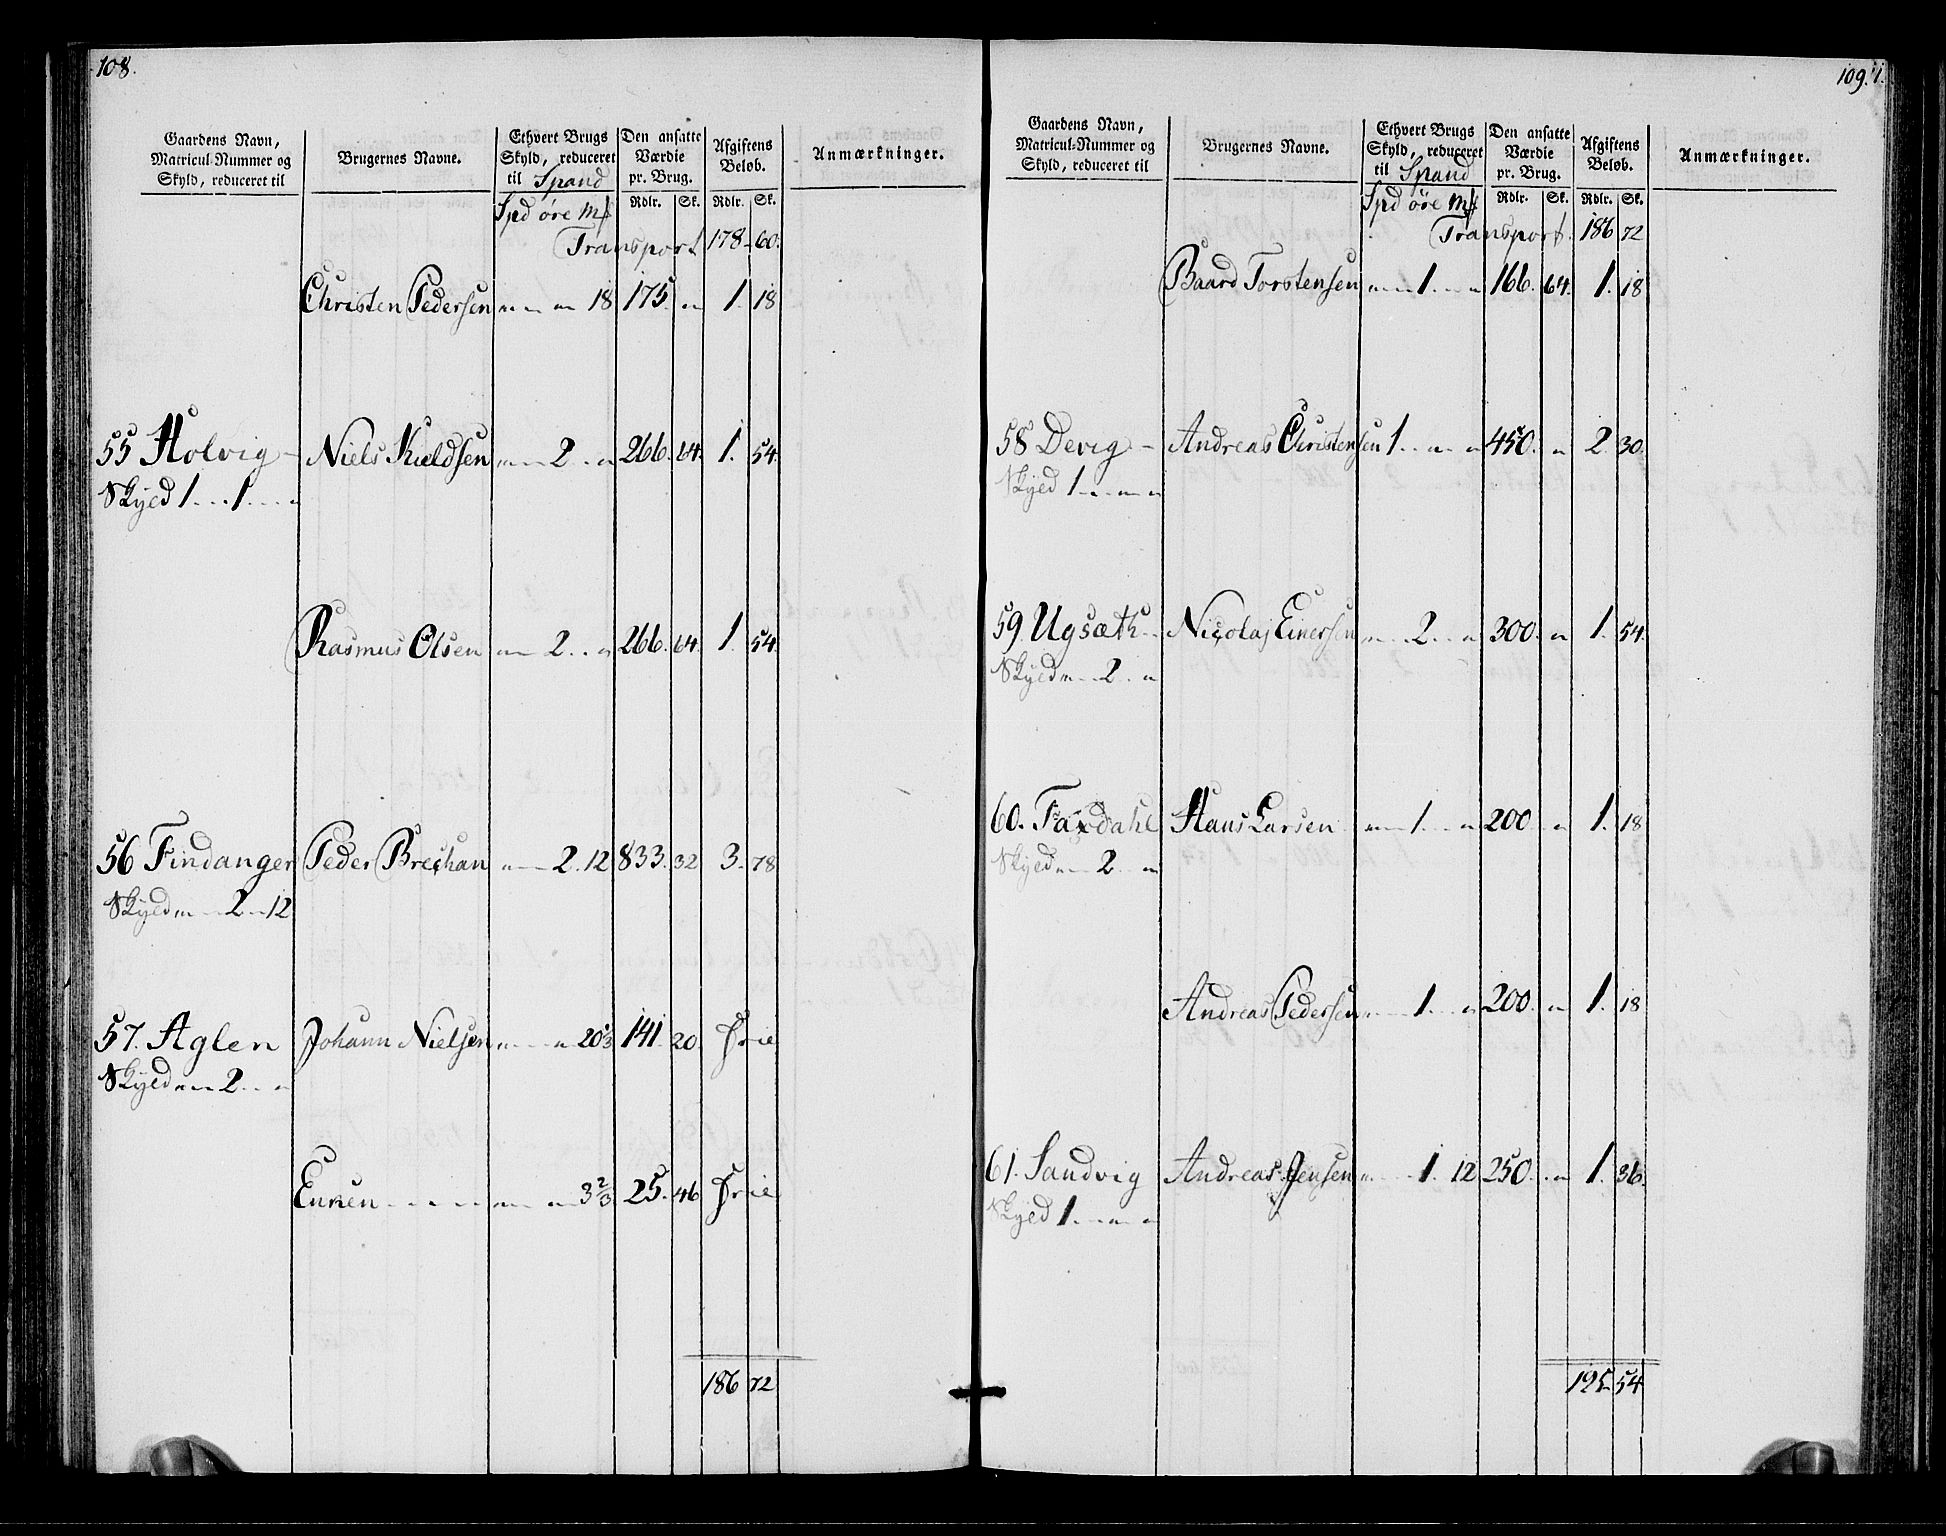 108.
Gaardens Navn, Matricul-Nummer og Skyld, reduceret til
Brugernes Navne.
Ethvert Brugs Skyld, reduceret til Spand
Den ansatte Værdie pr. Brug.
Afgiftens Beløb.
Anmærkninger.
Spd øre Mk Rdlr. Sk. Rdlr. Sk.
Transport 178 60.
Christen Pedersen " " 18 175. " 1. 18
55 Holvig Niels Kieldsen " 2 " 266. 64. 1. 54.
Skyld 1 . . 1 . . "
Rasmus Olsen " 2 . . " 266. 64. 1. 54.
56 Findanger Peder Brechan " 2. 12 833. 32 3. 78
Skyld " 2 12
57. Aglen Johann Nielsen " " 20 1/3 141. 20. Frie
Skyld " 2 . . "
Enken " " 3 2/3 25. 46 Frie
186 72
109.
Gaardens Navn, Matricul-Nummer og Skyld, reduceret til
Brugernes Navne.
Ethvert Brugs Skyld, reduceret til Spand
Den ansatte Værdie pr. Brug.
Afgiftens Beløb.
Anmærkninger.
Spd øre Mk Rdlr. Sk. Rdlr. Sk.
Transport. 186 72
Baard Torstensen " 1. " 166. 64. 1. 18
58 Devig Andreas Christensen 1. " " 450. " 2. 30.
Skyld 1 . " "
59. Ugsæth Nicolaj Einersen " 2. " 300. " 1. 54.
Skyld " 2 . "
60. Faxdahl Hans Larsen " 1. " 200 " 1. 18
Skyld " 2 . "
Andreas Pedersen " 1. " 200. " 1. 18
61. Sandvig Andreas Jensen " 1. 12 250. " 1. 36.
Skyld 1 . " "
195 54